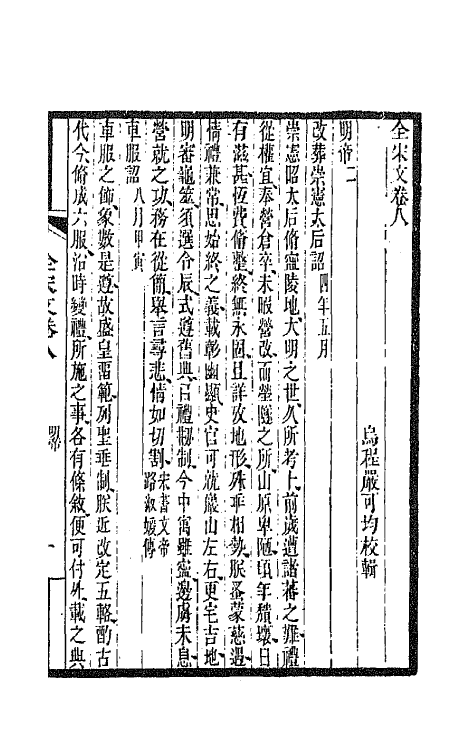 全宋文卷八
烏程嚴可均校輯
明帝二
改葬崇憲太后詔 四年五月
崇憲昭太后修寧陵地大明之世久所考卜前歲遭諸蕃之難禮
從權宜奉營倉卒未暇營改而塋隧之所山原卑陋頃年頹壞日
有滋甚恆費修整終無永固且詳考地形殊乖相勢朕蚤蒙慈遇
情禮兼常思始終之義載彰幽顯史官可就巖山左右更宅吉地
明審龜筮須選令辰式遵舊典以禮剏制今中寓雖寧邊虜未息
營就之功務在從簡舉言尋悲情如切割 宋書文帝路淑媛傳
車服詔 八月甲寅
車服之飾象數是遵故盛皇留範列聖垂制朕近改定五輅酌古
代今修成六服沿時變禮所施之事各有條敘便可付外載之典
全宋文卷八
明帝
一